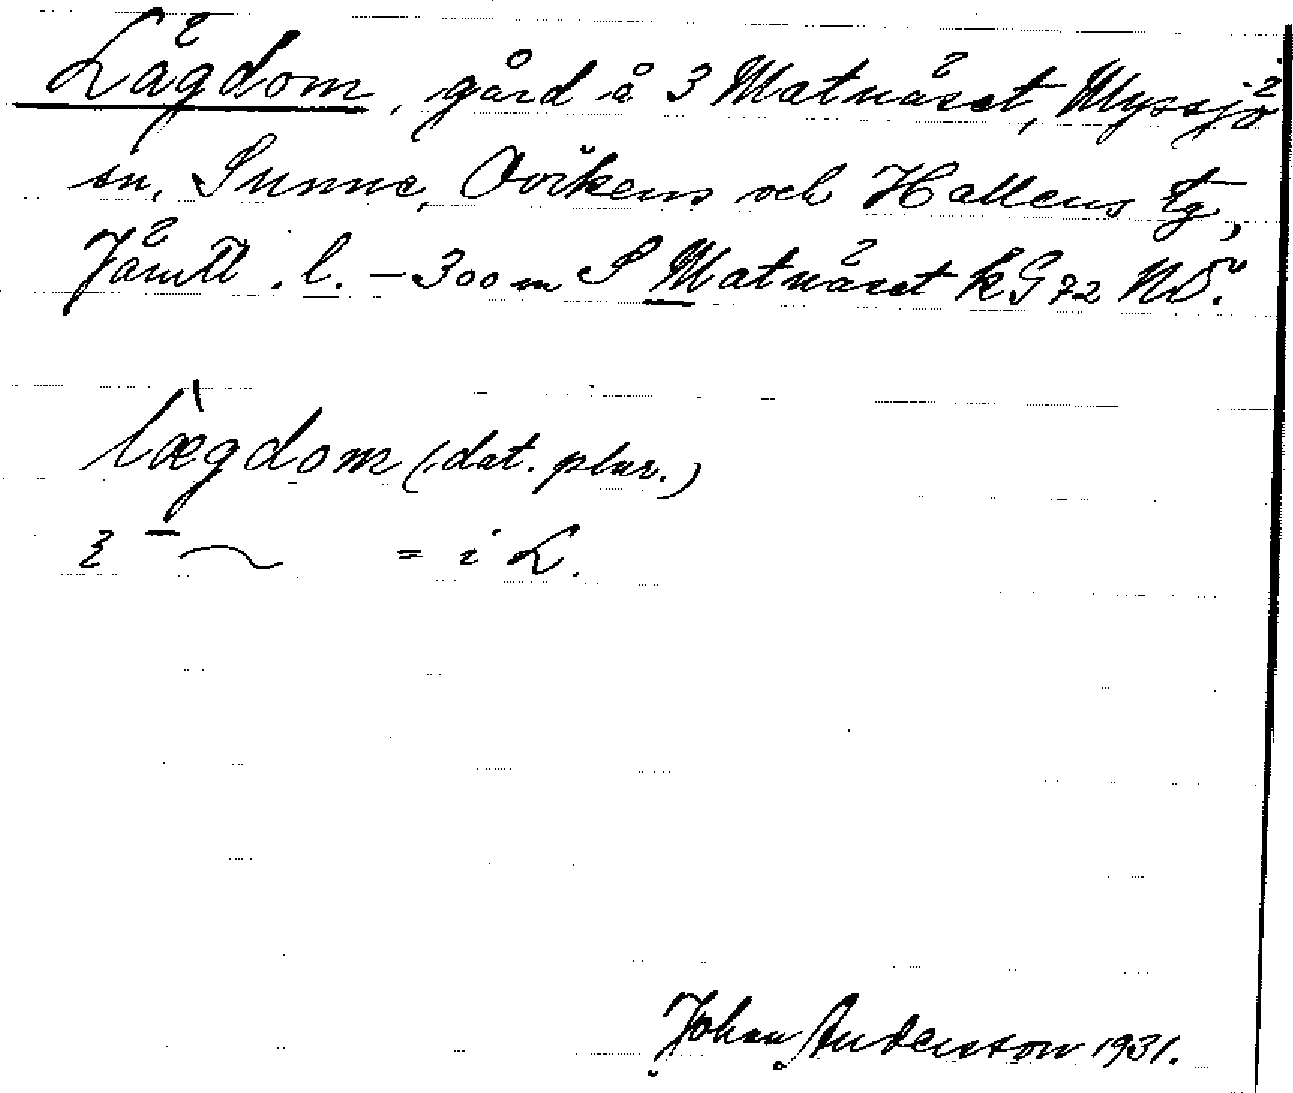 Lägdom, gård å 3 Matnäset, Myssjö
sn, Sunne, Ovikens och Hallens tg,
Jämtl. l. – 300 m S Matnäset kG 72 NO.
lægdom (dat. plur.)
= i L.
Johan Anderson 1931.